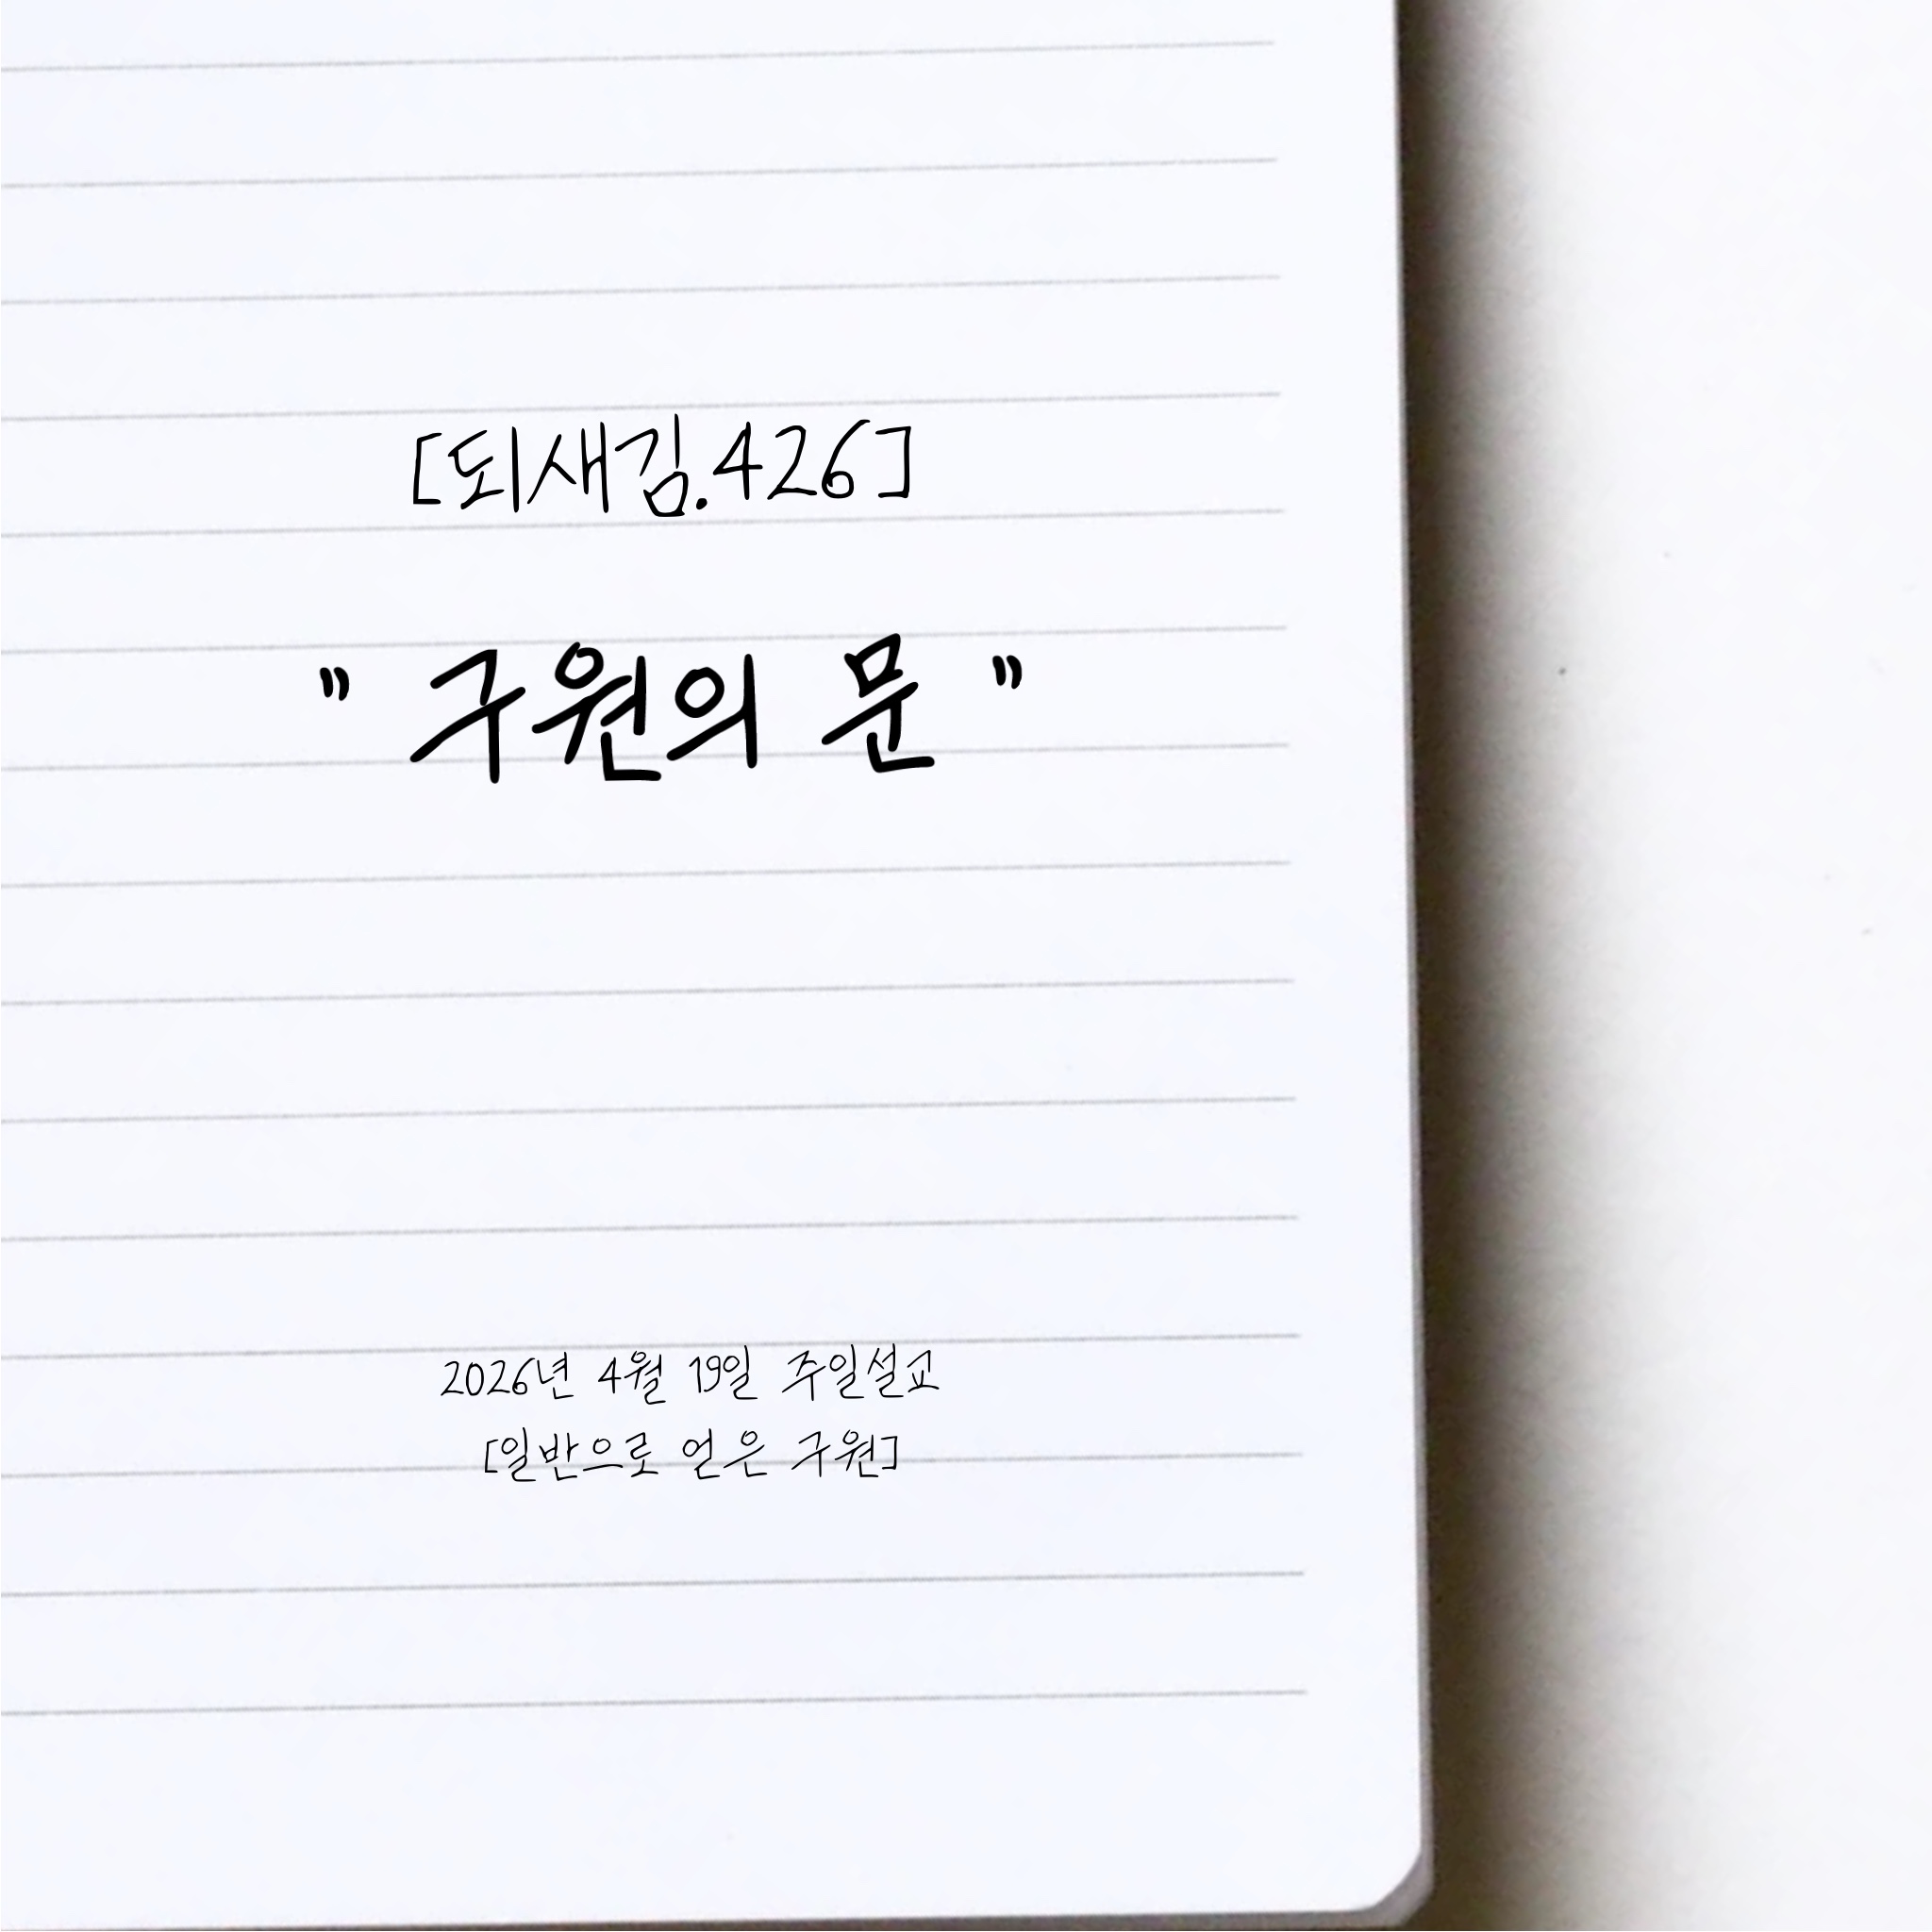 [되새김.426]
" 구원의 문 "
2026년 4월 19일 주일설교
[일반으로 얻은 구원]